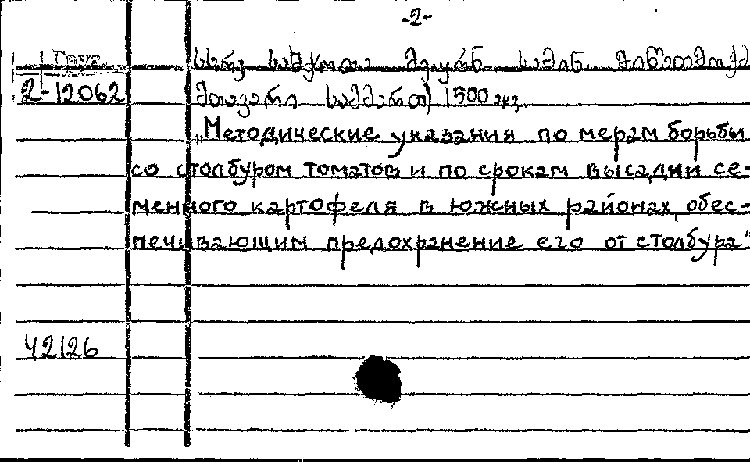 -2-
Груз.
2-12062
სსრკ სამ
მთავარი სამმართ) 1500 экз.
„Методические указания по мерам борьбы
со столбуром томатов и по срокам высадки се-
менного картофеля в южных районах, обес-
печивающим предохранение его от столбура"
42126